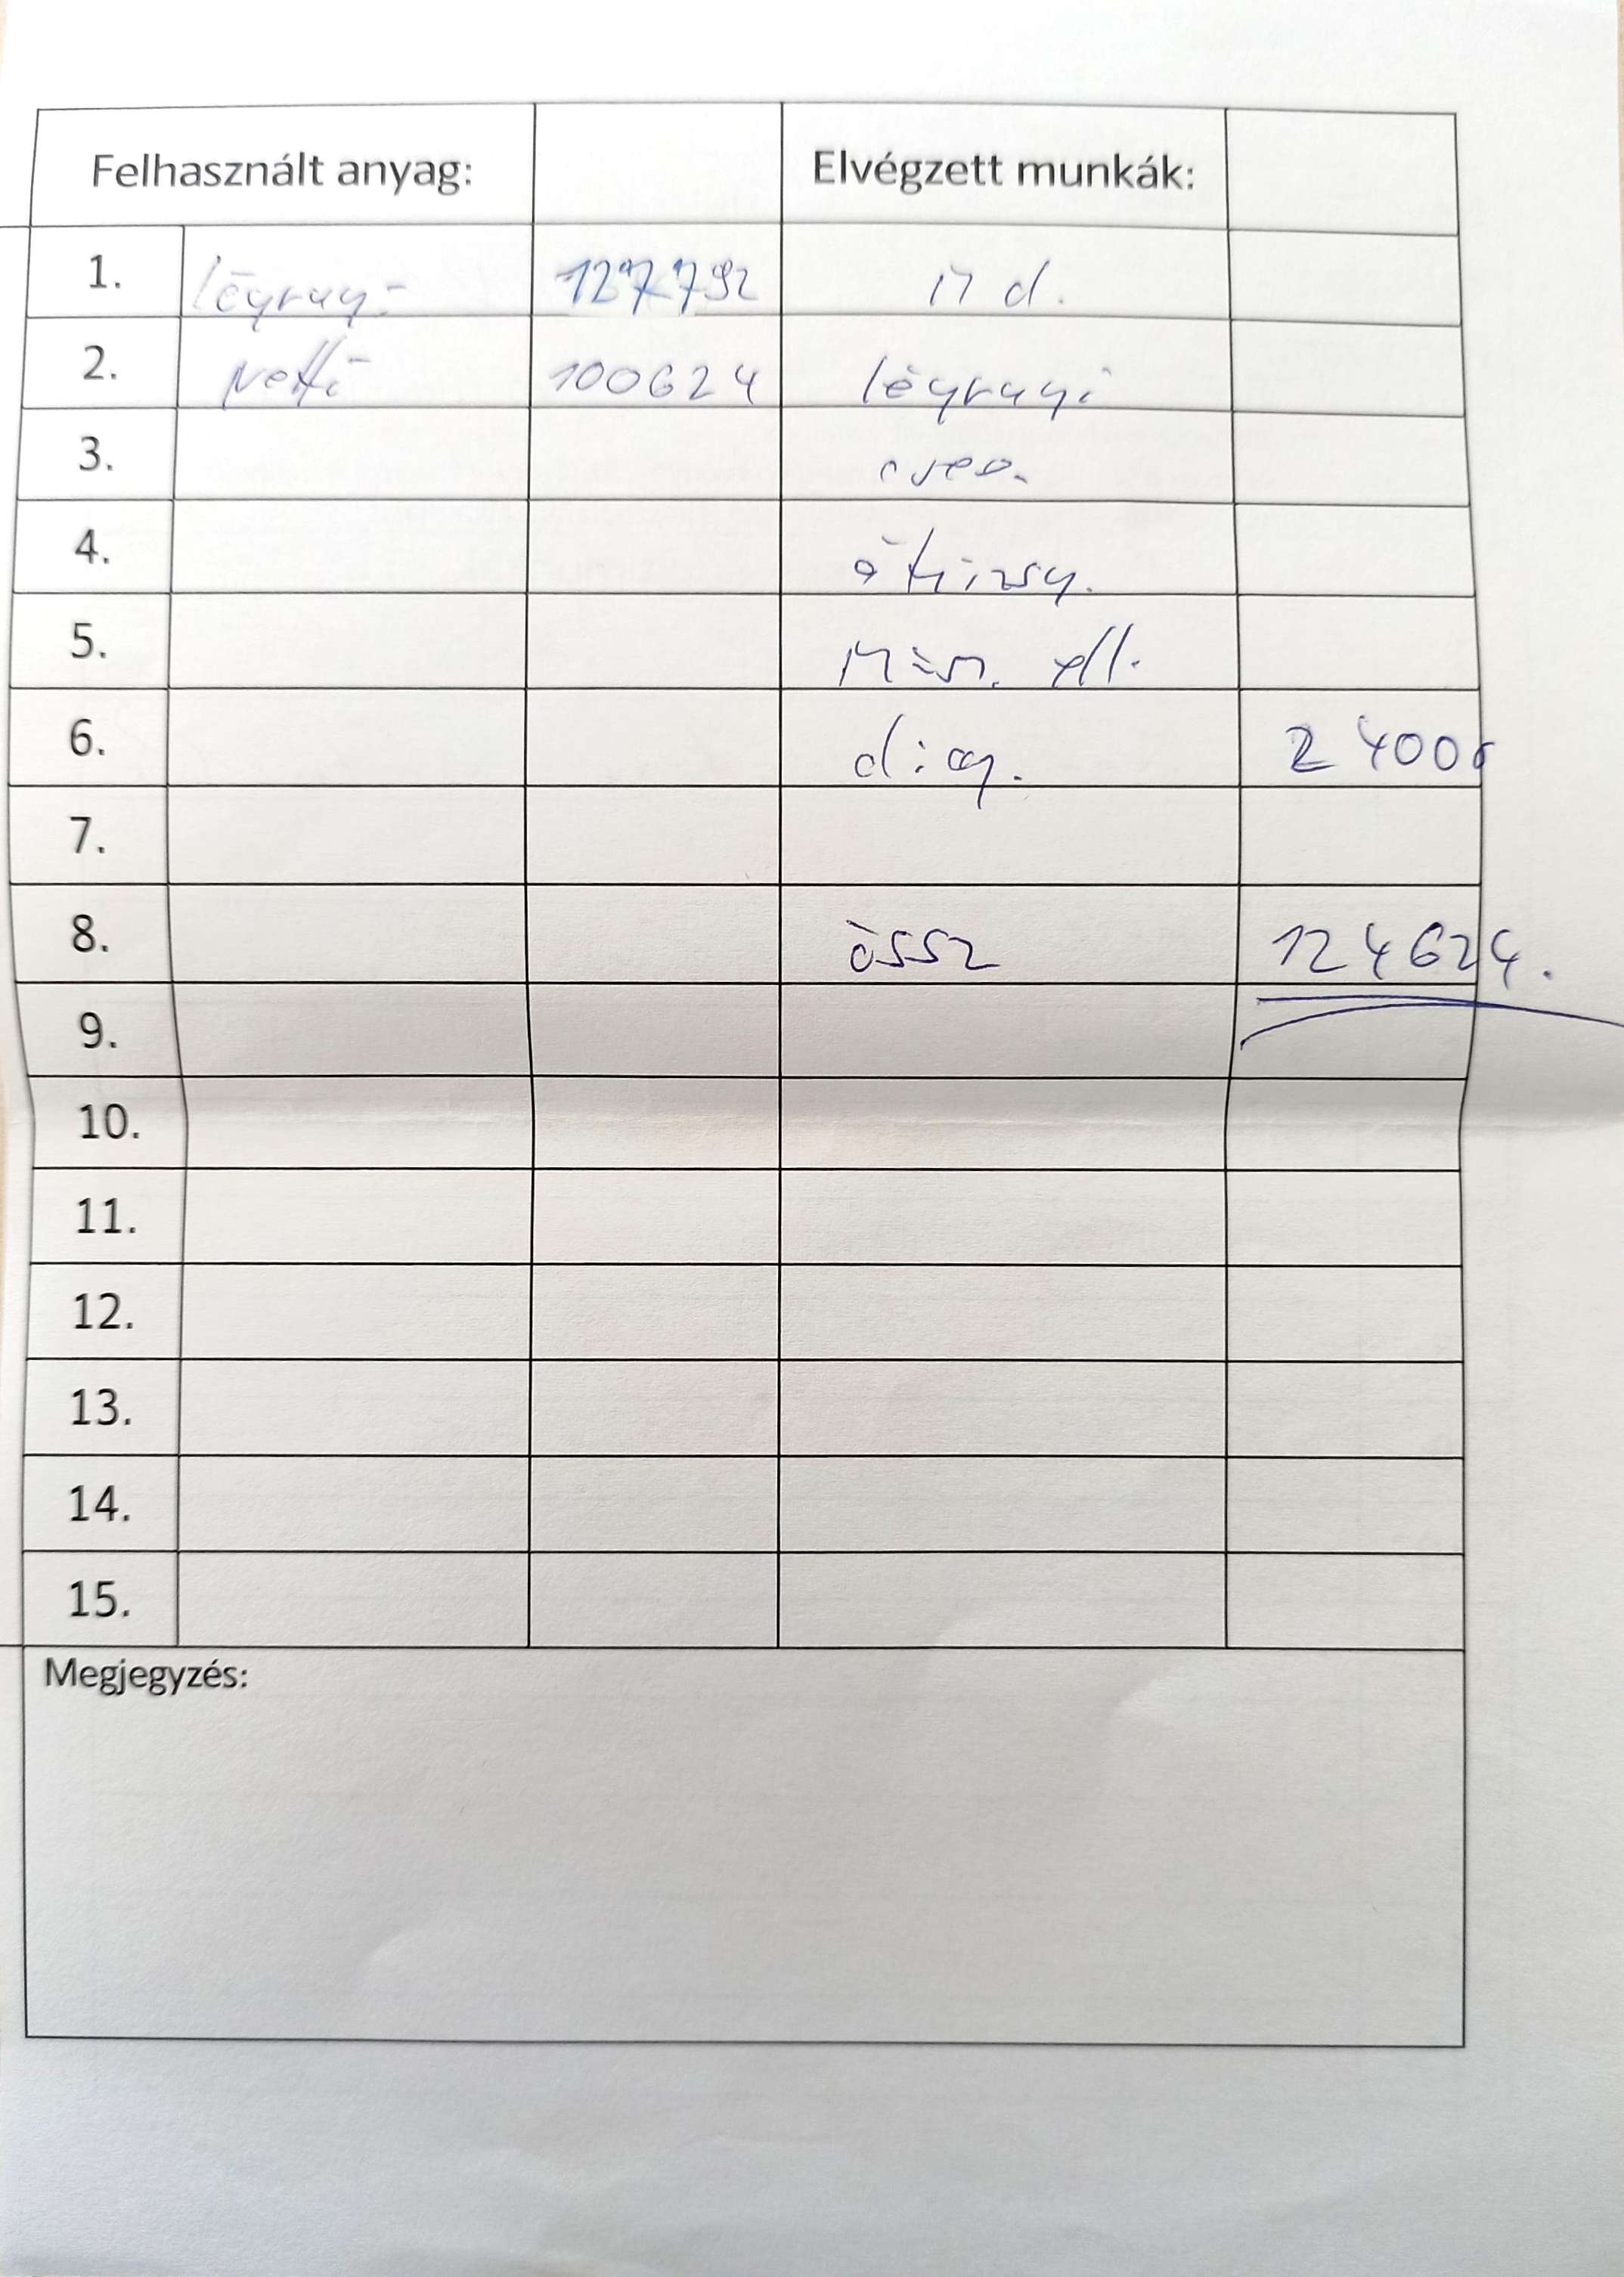 Felhasznált anyag: Elvégzett munkák:
1. légrugó 127792 M d.
2. Nettó 100624 légrugó
3. csere.
4. átvizsg.
5. ell.
6. diag. 24000
7.
8. össz 124624.
9.
10.
11.
12.
13.
14.
15.
Megjegyzés: